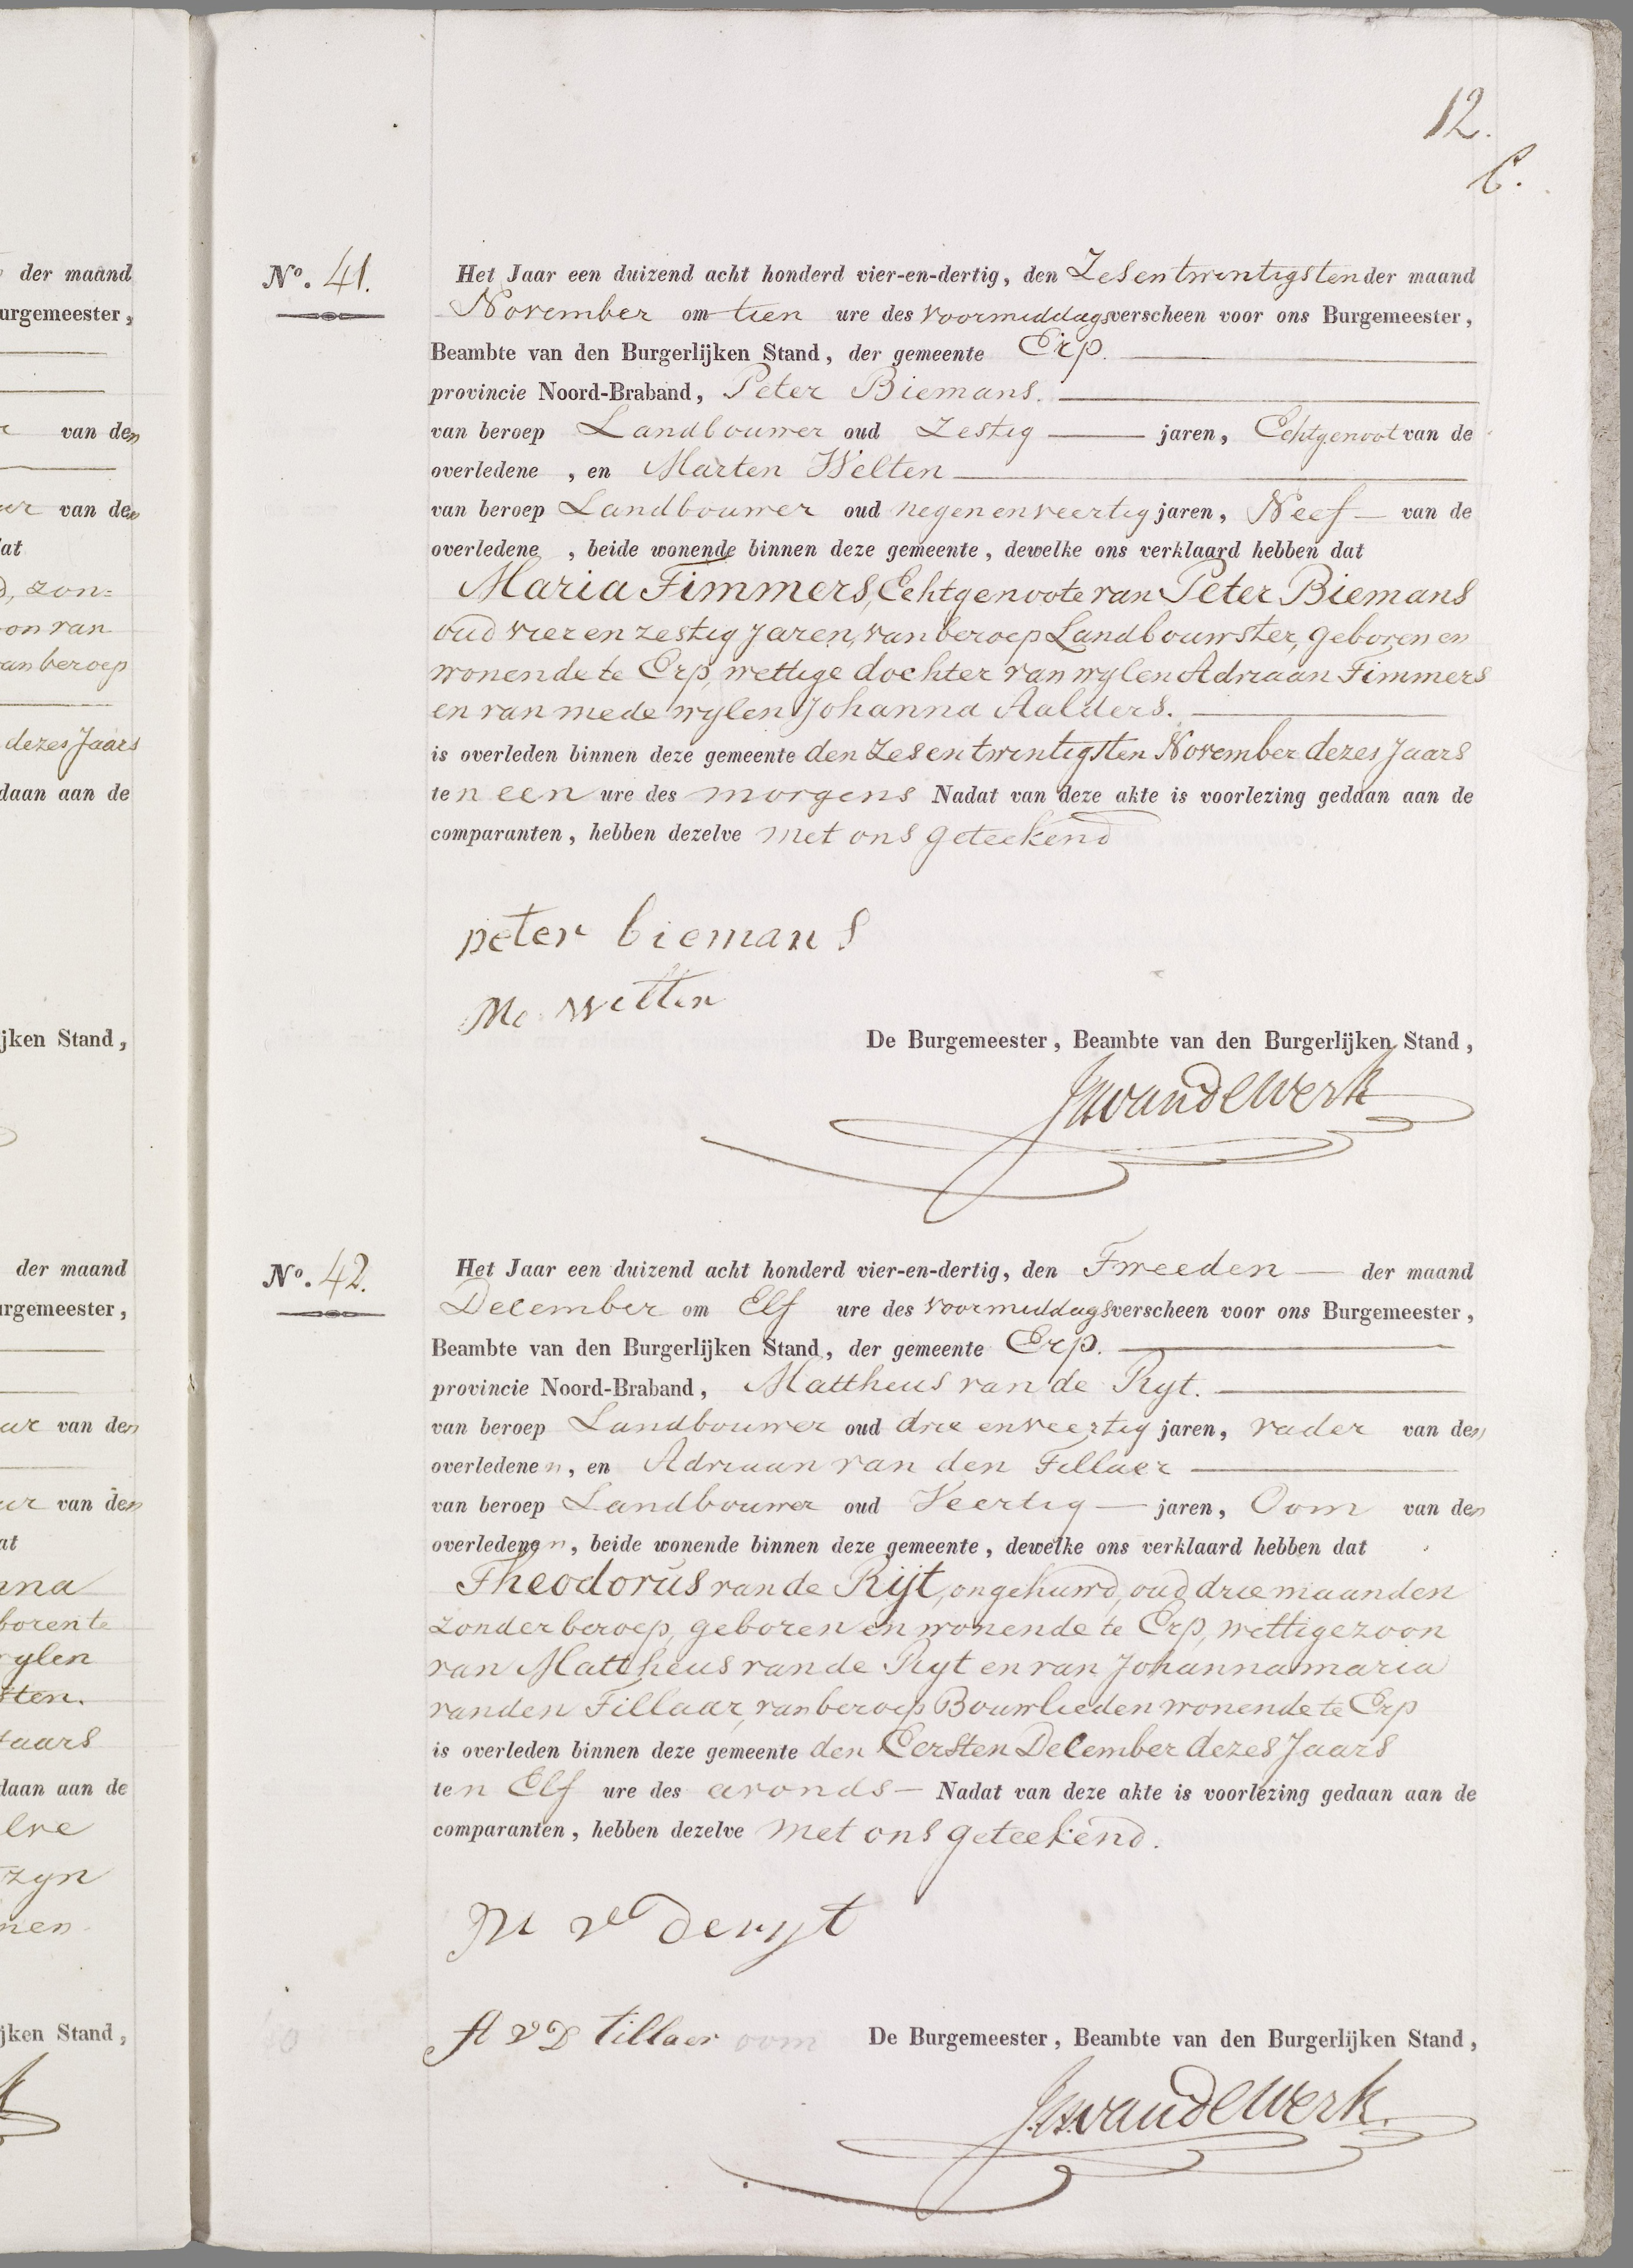 der maand
urgemeester,
van den
ur van den
at
d, zon=
on van
van beroep
dezes Jaars
daan aan de
jken Stand,
der maand
urgemeester,
ur van den
ur van den
at
nna
boren te
wylen
sten.
Jaars
daan aan de
lve
zyn
nen
jken Stand,
12.
6.
No. 41. Het Jaar een duizend acht honderd vier-en-dertig, den Zesentwintigsten der maand
November om tien ure des voormiddags verscheen voor ons Burgemeester,
Beambte van den Burgerlijken Stand, der gemeente Erp.
provincie Noord-Braband, Peter Biemans.
van beroep Landbouwer oud Zestig jaren, Echtgenoot van de
overledene , en Marten Welten
van beroep Landbouwer oud negen en veertig jaren, Neef van de
overledene , beide wonende binnen deze gemeente, dewelke ons verklaard hebben dat
Maria Timmers, Echtgenoote van Peter Biemans
oud vier en zestig Jaren, van beroep Landbouwster, geboren en
wonende te Erp, wettige dochter van wylen Adriaan Timmers
en van mede wylen Johanna Aalders.
is overleden binnen deze gemeente den Zesentwintigsten November dezes Jaars
ten een ure des morgens Nadat van deze akte is voorlezing gedaan aan de
comparanten, hebben dezelve met ons geteekend
peter biemans
M. Welten
De Burgemeester, Beambte van den Burgerlijken Stand,
vandeWerk
No. 42. Het Jaar een duizend acht honderd vier-en-dertig, den Tweeden der maand
December om Elf ure des voormiddags verscheen voor ons Burgemeester,
Beambte van den Burgerlijken Stand, der gemeente Erp.
provincie Noord-Braband, Mattheus van de Ryt.
van beroep Landbouwer oud drie en veertig jaren, vader van den
overledenen, en Adriaan van den Tillaer
van beroep Landbouwer oud Veertig jaren, Oom van den
overledenen, beide wonende binnen deze gemeente, dewelke ons verklaard hebben dat
Theodorus van de Rijt, ongehuwd, oud drie maanden
zonder beroep, geboren en wonende te Erp, wettige zoon
van Mattheus van de Ryt en van Johanna maria
van den Tillaar, van beroep Bouwlieden wonende te Erp
is overleden binnen deze gemeente den Eersten December dezes Jaars
ten Elf ure des avonds Nadat van deze akte is voorlezing gedaan aan de
comparanten, hebben dezelve met ons geteekend.
M v deryt
A v D tillaer oom
De Burgemeester, Beambte van den Burgerlijken Stand,
vandeWerk